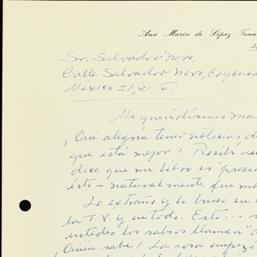 Ana María de López Tena
Sr. Salvador Novo,
Calle Salvador Novo, Coyoac
Mexico 21, D. F.
Mi queridísimo ma
¡Qué alegría tener noticias d
que está mejor! Recibí su
dice que mi libro es "precio
ésto - naturalmente que me
Lo extraño y lo busco en
la T.V. y en todo. Esto... s
ustedes los sabios llaman "
¡Quién sabe! La cosa empezó